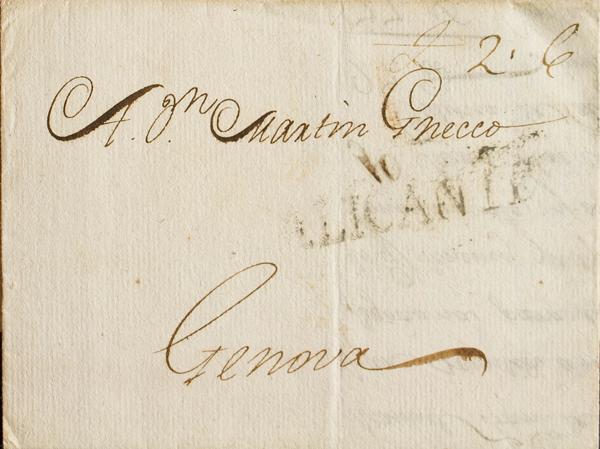 2. 6
A. Dn Martin Gnecco
ALICANTE
Genova